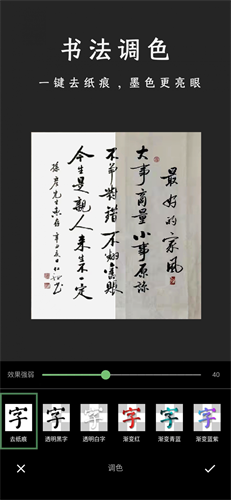 书法调色
一键去纸痕，墨色更亮眼
最好的家风
大事商量小事原谅
不算对错不翻旧账
今生是亲人来生不一定
效果強弱
40
字 字 字 字 字 字
去纸痕 透明黑字 透明白字 渐变红 渐变青蓝 渐变蓝紫
调色